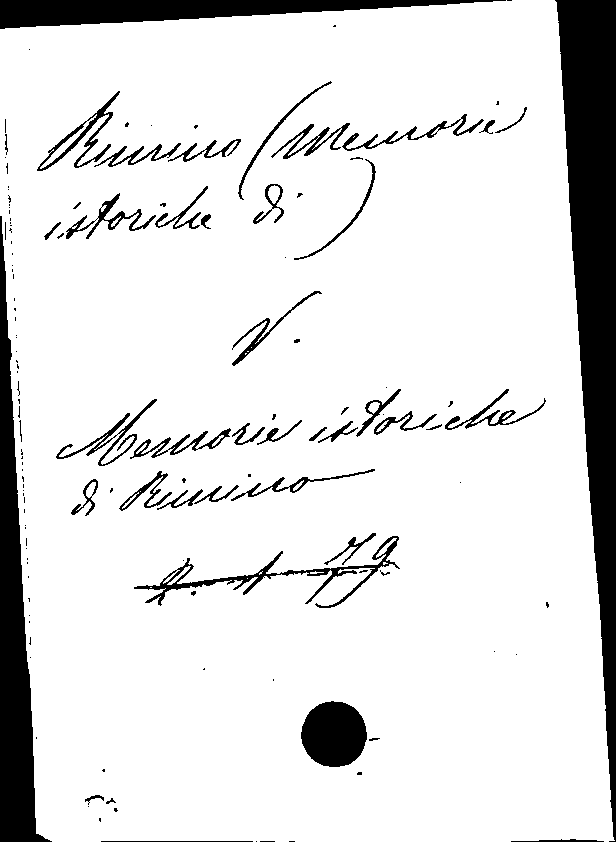 Rimino (Memorie
istoriche di)
V.
Memorie istoriche
di Rimino